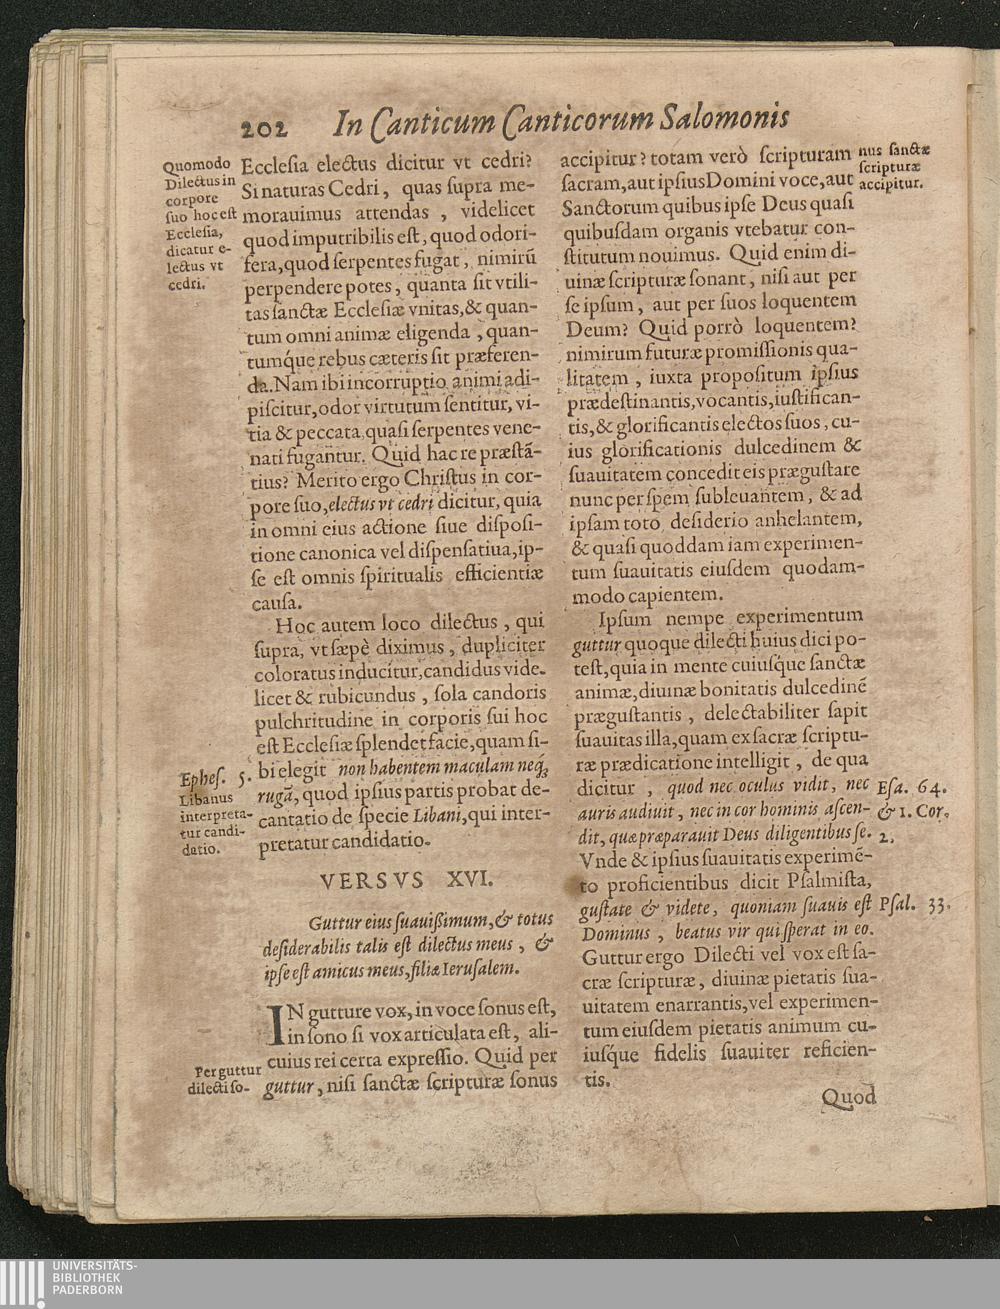 202 In Canticum Canticorum Salomonis
Quomodo
Dilectus in
corpore
ſuo hoc eſt
Eccleſia,
dicatur e-
lectus vt
cedri.
Eccleſia electus dicitur vt cedri?
Si naturas Cedri, quas ſupra me-
morauimus attendas, videlicet
quod imputribilis eſt, quod odori-
fera, quod ſerpentes fugat, nimirū
perpendere potes, quanta ſit vtili-
tas ſanctæ Eccleſiæ vnitas, & quan-
tum omni animæ eligenda, quan-
tumq́ue rebus cæteris ſit præferen-
da. Nam ibi incorruptio animi adi-
piſcitur, odor virtutum ſentitur, vi-
tia & peccata quaſi ſerpentes vene-
nati fugantur. Quid hac re præſtā-
tius? Merito ergo Chriſtus in cor-
pore ſuo, electus vt cedri dicitur, quia
in omni eius actione ſiue diſpoſi-
tione canonica vel diſpenſatiua, ip-
ſe eſt omnis ſpiritualis efficientiæ
cauſa.
Hoc autem loco dilectus, qui
ſupra, vt ſæpè diximus, dupliciter
coloratus inducitur, candidus vide-
licet & rubicundus, ſola candoris
pulchritudine in corporis ſui hoc
eſt Eccleſiæ ſplendet facie, quam ſi-
Epheſ. 5.
bi elegit non habentem maculam neq́ꝫ
Libanus
interpreta-
tur candi-
datio.
rugā, quod ipſius partis probat de-
cantatio de ſpecie Libani, qui inter-
pretatur candidatio.
VERSVS XVI.
Guttur eius ſuauißimum, & totus
deſiderabilis talis eſt dilectus meus, &
ipſe eſt amicus meus, filiæ Ieruſalem.
IN gutture vox, in voce ſonus eſt,
in ſono ſi vox articulata eſt, ali-
cuius rei certa expreſſio. Quid per
Per guttur
dilecti ſo-
guttur, niſi ſanctæ ſcripturæ ſonus
nus ſanctæ
ſcripturæ
accipitur.
accipitur? totam verò ſcripturam
ſacram, aut ipſius Domini voce, aut
Sanctorum quibus ipſe Deus quaſi
quibuſdam organis vtebatur con-
ſtitutum nouimus. Quid enim di-
uinæ ſcripturæ ſonant, niſi aut per
ſe ipſum, aut per ſuos loquentem
Deum? Quid porrò loquentem?
nimirum futuræ promiſſionis qua-
litatem, iuxta propoſitum ipſius
prædeſtinantis, vocantis, iuſtifican-
tis, & glorificantis electos ſuos, cu-
ius glorificationis dulcedinem &
ſuauitatem concedit eis præguſtare
nunc per ſpem ſubleuantem, & ad
ipſam toto deſiderio anhelantem,
& quaſi quoddam iam experimen-
tum ſuauitatis eiuſdem quodam-
modo capientem.
Ipſum nempe experimentum
guttur quoque dilecti huius dici po-
teſt, quia in mente cuiuſq́ue ſanctæ
animæ, diuinæ bonitatis dulcedinē
præguſtantis, delectabiliter ſapit
ſuauitas illa, quam ex ſacræ ſcriptu-
ræ prædicatione intelligit, de qua
dicitur, quod nec oculus vidit, nec
auris audiuit, nec in cor hominis aſcen-
dit, quæ præparauit Deus diligentibus ſe.
Eſa. 64.
& 1. Cor.
2.
Vnde & ipſius ſuauitatis experimē-
to proficientibus dicit Pſalmiſta,
guſtate & videte, quoniam ſuauis eſt
Pſal. 33.
Dominus, beatus vir qui ſperat in eo.
Guttur ergo Dilecti vel vox eſt ſa-
cræ ſcripturæ, diuinæ pietatis ſua-
uitatem enarrantis, vel experimen-
tum eiuſdem pietatis animum cu-
iuſq́ue fidelis ſuauiter reficien-
tis.
Quod
UNIVERSITÄTS-
BIBLIOTHEK
PADERBORN